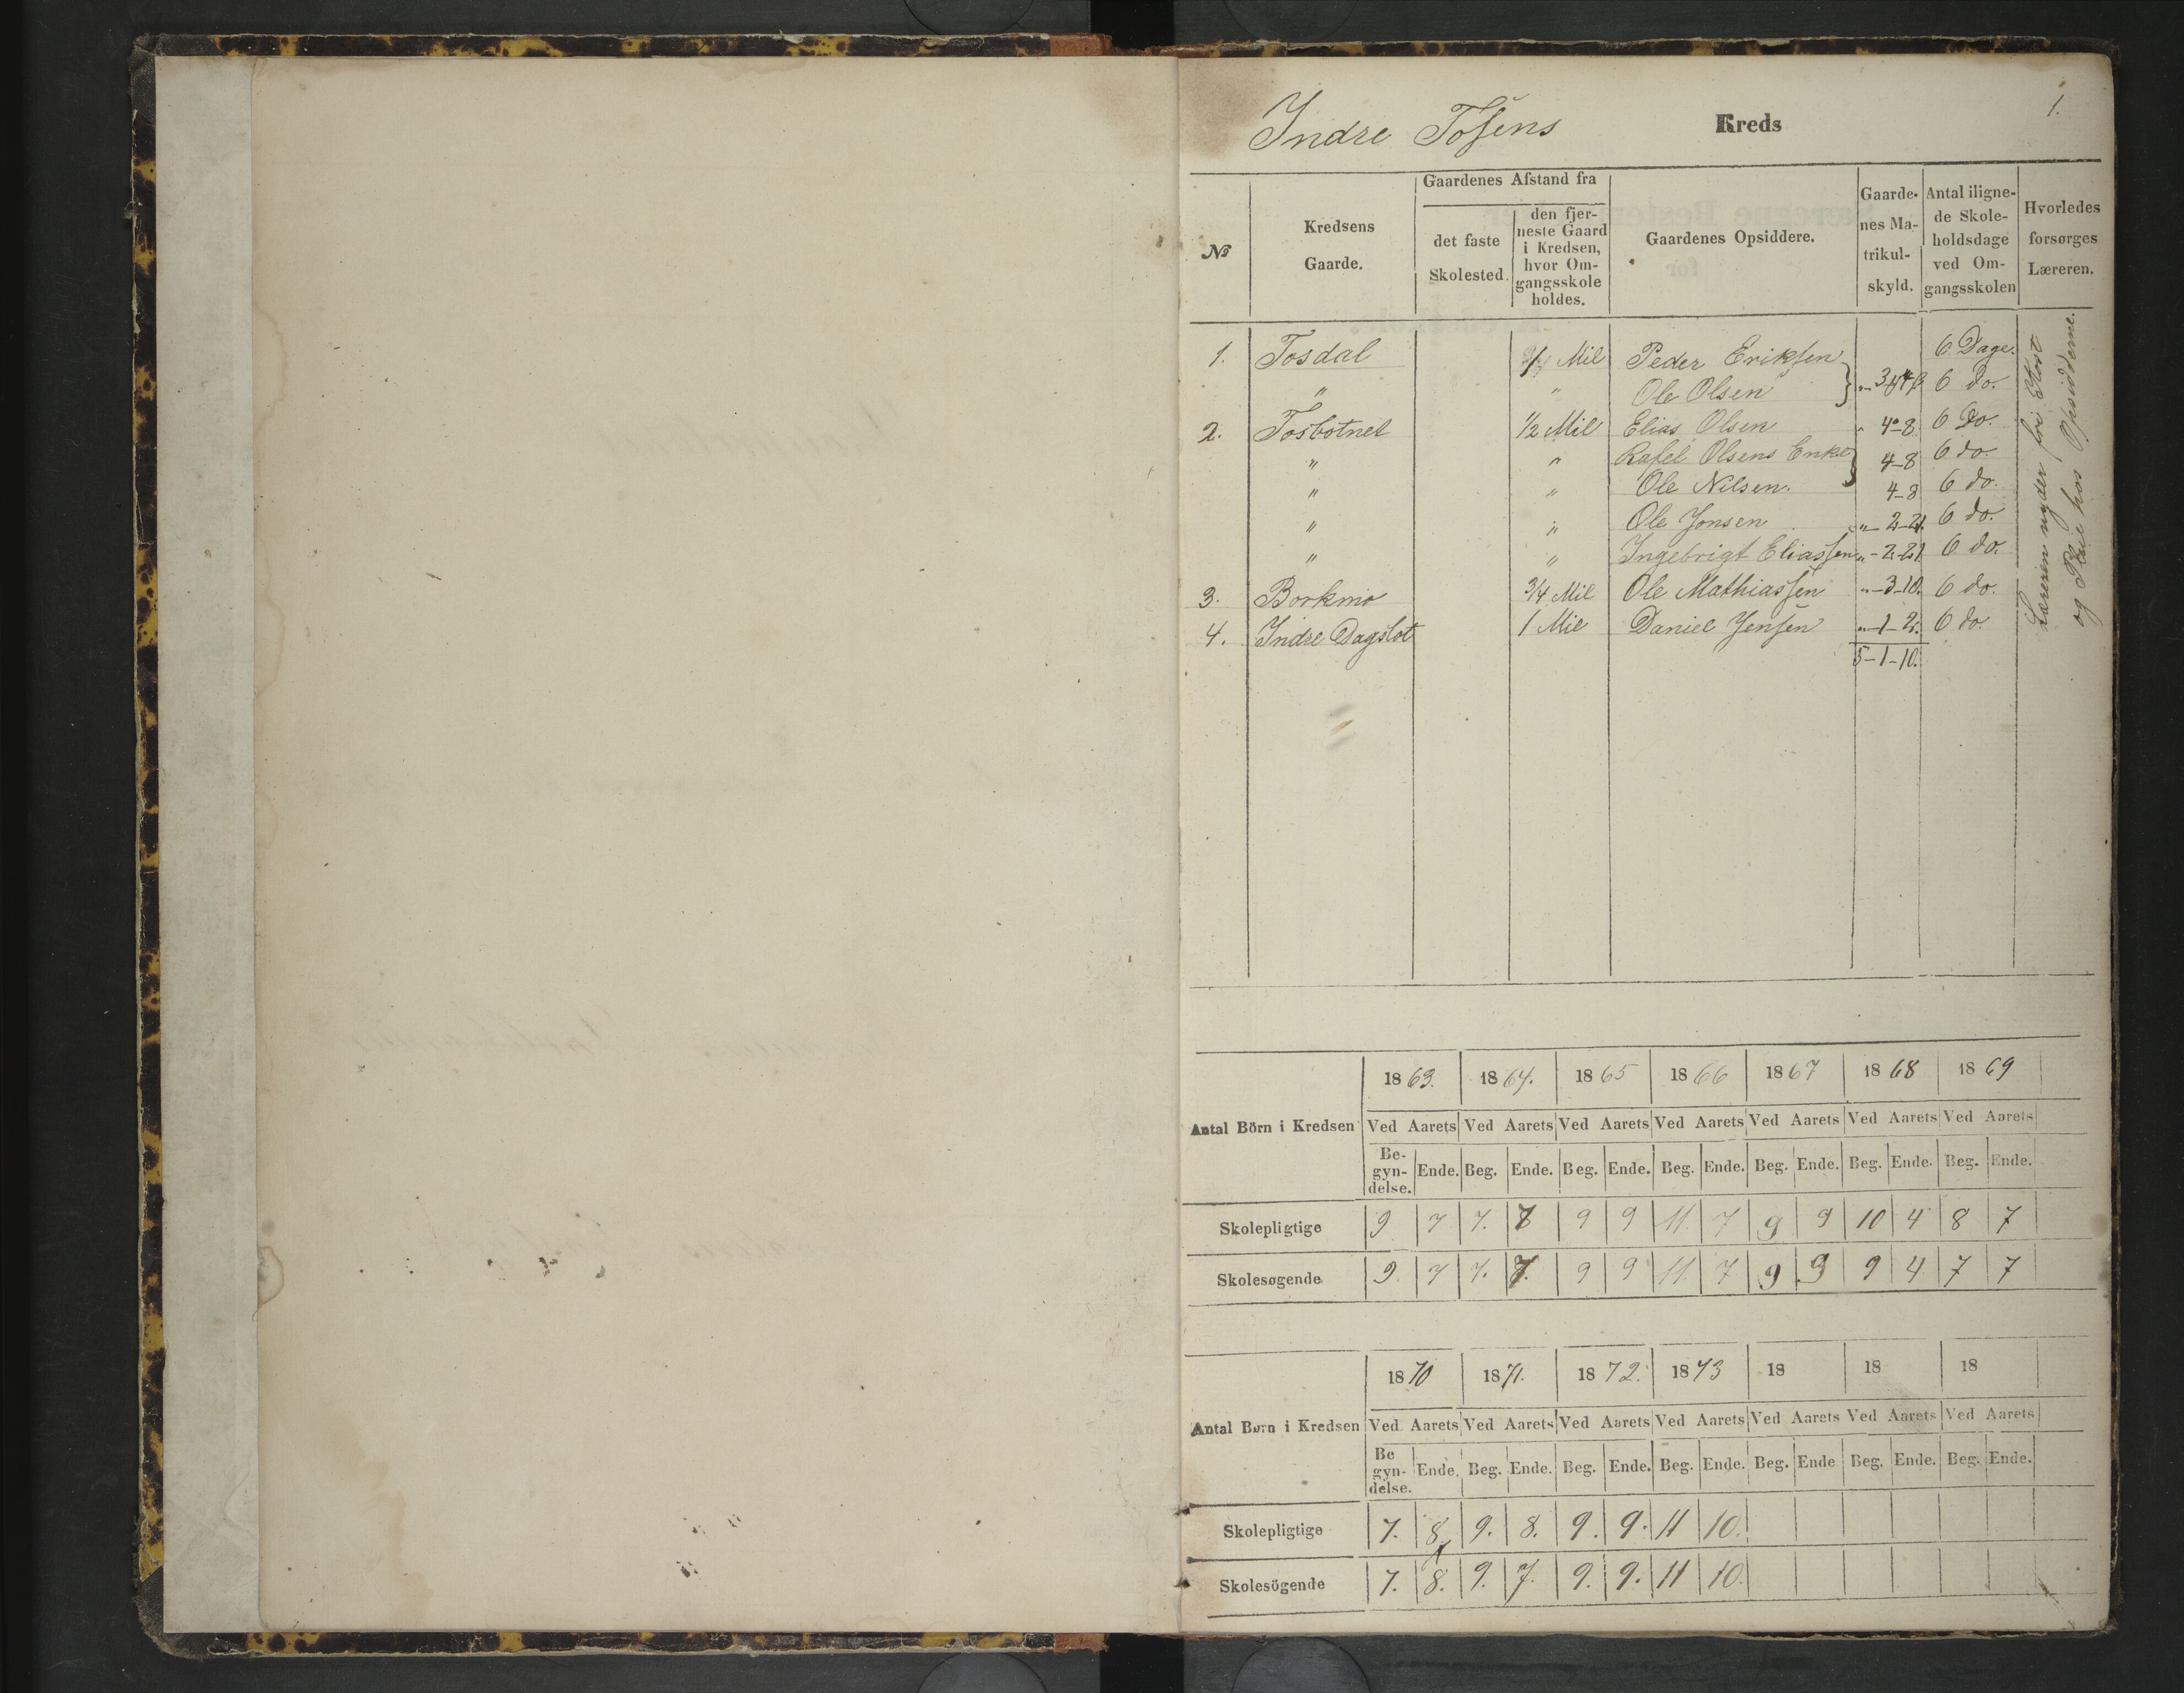 1.
Indre Tosens Kreds
№ | Kredsens Gaarde. | Gaardenes Afstand fra det faste Skolested. | den fjerneste Gaard i Kredsen, hvor Omgangsskole holdes. | Gaardenes Opsiddere. | Gaardenes Matrikulskyld. | Antal ilignede Skoleholdsdage ved Omgangsskolen | Hvorledes forsørges Læreren.
1. Tosdal Mil Peder Eriksen 6 Dage.
" " Ole Olsen 6 do.
2. Tosbotnet 1/2 Mil Elias Olsen " 4-8 6 Do.
" " Rafel Olsens Enke 4-8 6 do
" " Ole Nilsen. 4-8 6 do.
" " Ole Jonsen "-2-21. 6 do.
" " Ingebrigt Eliassen "-2-21 6 do.
3. Borkmo 3/4 Mil Ole Mathiassen "-3-10. 6 do.
4. Indre Dagslot 1 Mil Daniel Jensen "-1-2. 6 do.
5-1-10.
Læreren nyder fri Kost
og Pleie hos Opsidderne.
1863. 1864. 1865 1866 1867 1868 1869
Antal Börn i Kredsen Ved Aarets Ved Aarets Ved Aarets Ved Aarets Ved Aarets Ved Aarets Ved Aarets
Begyndelse. Ende. Beg. Ende. Beg. Ende. Beg. Ende. Beg. Ende. Beg. Ende. Beg. Ende.
Skolepligtige 9 7 7. 7 9 9 11. 7 9 9 10 4 8 7
Skolesøgende 9. 7 7. 7. 9 9 11. 7 9 9 9 4 7 7
1870 1871. 1872. 1873 18 18 18
Antal Børn i Kredsen Ved Aarets Ved Aarets Ved Aarets Ved Aarets Ved Aarets Ved Aarets Ved Aarets
Begyndelse. Ende. Beg. Ende. Beg. Ende. Beg. Ende. Beg. Ende Beg. Ende. Beg. Ende.
Skolepligtige 7. 8. 9. 8. 9. 9. 11 10.
Skolesögende 7. 8. 9. 7. 9. 9. 11 10.